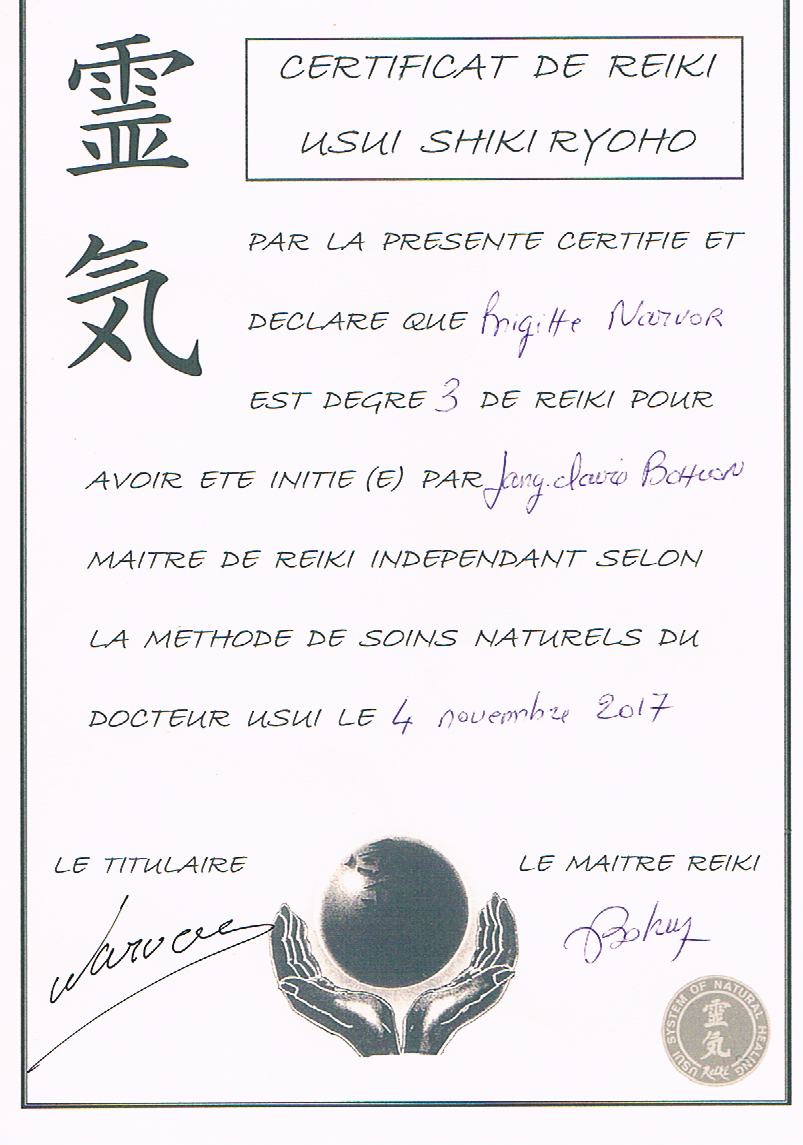 霊気
CERTIFICAT DE REIKI
USUI SHIKI RYOHO
PAR LA PRESENTE CERTIFIE ET
DECLARE QUE Brigitte NARVOR
EST DEGRE 3 DE REIKI POUR
AVOIR ETE INITIE (E) PAR
MAITRE DE REIKI INDEPENDANT SELON
LA METHODE DE SOINS NATURELS DU
DOCTEUR USUI LE 4 novembre 2017
LE TITULAIRE
LE MAITRE REIKI
USUI SYSTEM OF NATURAL HEALING
霊気
Reiki